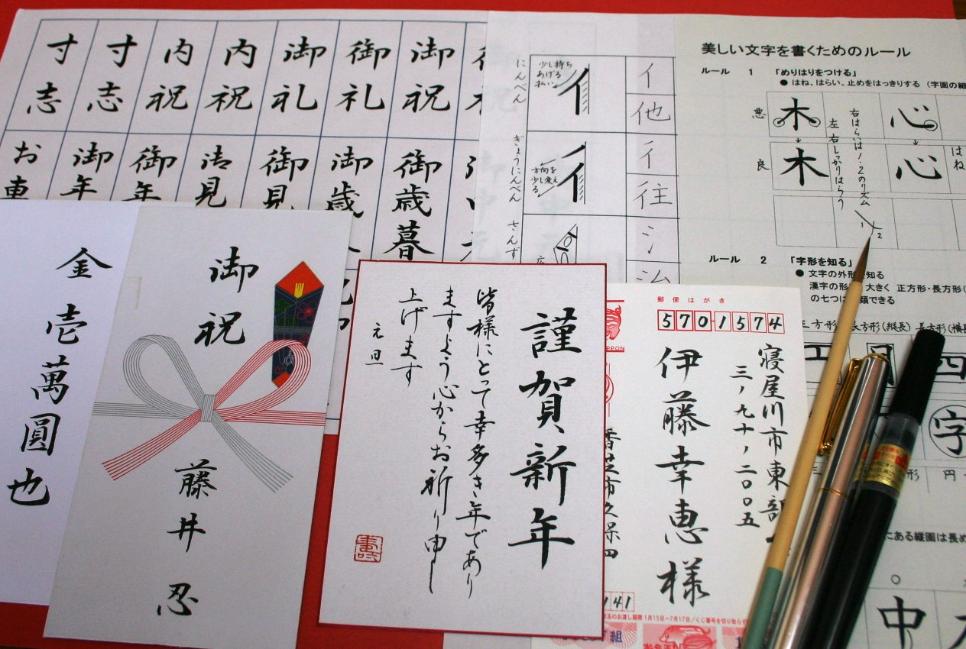 寸志
寸志
内祝
内祝
御礼
御礼
御祝
お車
御年
御年
御見
御見
御歳
御歳暮
金壱萬圓也
御祝
藤井忍
謹賀新年
皆様にとって幸多き年であり
ますよう心からお祈り申し
上げます
元旦
郵便はがき
5701574
寝屋川市東部
三、九十、二〇〇五
伊藤幸恵様
香芝市久保田
141
にんべん
少し持ち
あげる
払い
イ
イ
他
ぎょうにんべん
方向を
少し変え
る
彳
彳
往
さんず
氵
美しい文字を書くためのルール
ルール 1 「めりはりをつける」
● はね、はらい、止めをはっきりする (字面の縦
悪
木
心
良
木
心
右はらいは1・2のリズム
左右しっかりはらう
はね
1
2
ルール 2 「字形を知る」
● 文字の外形を知る
漢字の形
大きく 正方形・長方形(
の七つ
類できる
長方形(縦長)
長方形(横長
四
字
円
にある縦画は長め
中